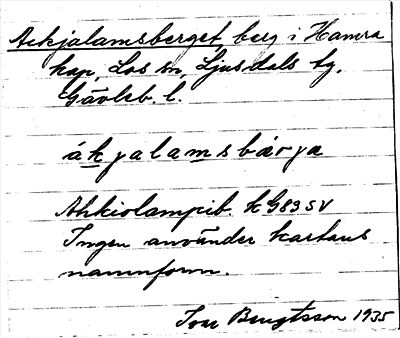 Ackjalamsberget, berg i Hamra
kap, Los sn, Ljusdals tg,
Gävleb. l.
ákjalamsbárja
Ahkiolampib. k G83 SV
Ingen använder kartans
namnform.
Ivar Bengtsson 1935